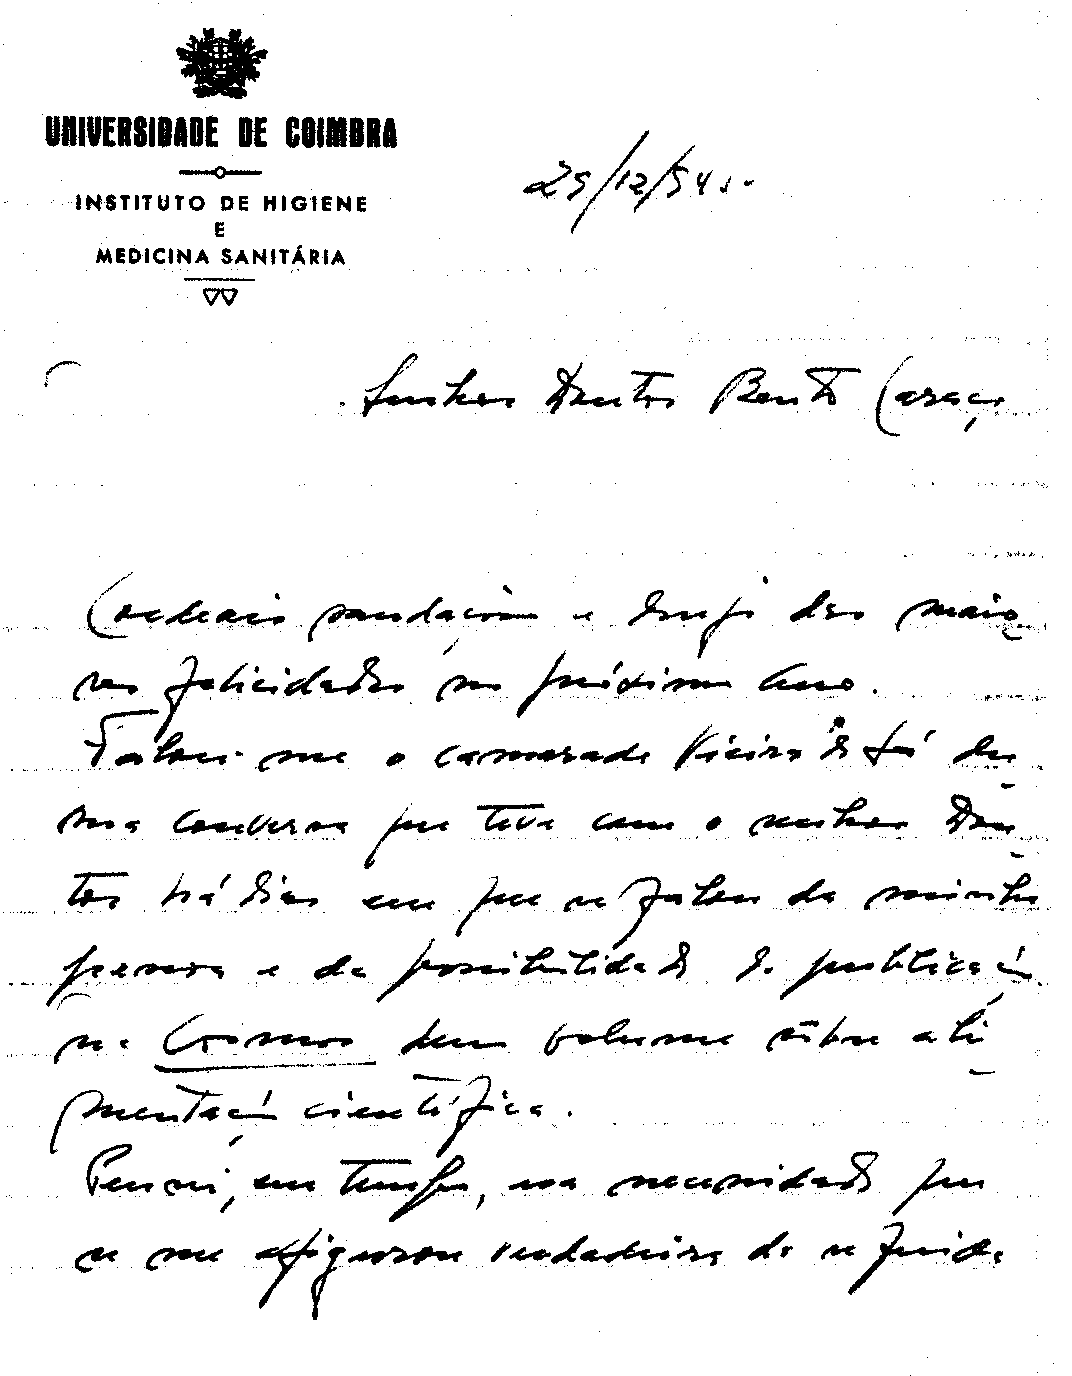 UNIVERSIDADE DE COIMBRA
INSTITUTO DE HIGIENE
E
MEDICINA SANITÁRIA
Senhor Doutor Bento Caraça
Cordeais saudações e desejo das maio
res felicidades no próximo Ano.
Falou-me o camarada Vieira de Sá du
ma conversa que teve com o senhor Dou
tor há dias em que se falou da minha
pessoa e da possibilidade de publicação
na Cosmos dum volume sôbre ali
mentação científica.
Pensei, em tempos, na necessidade que
se me afigurou verdadeira de se